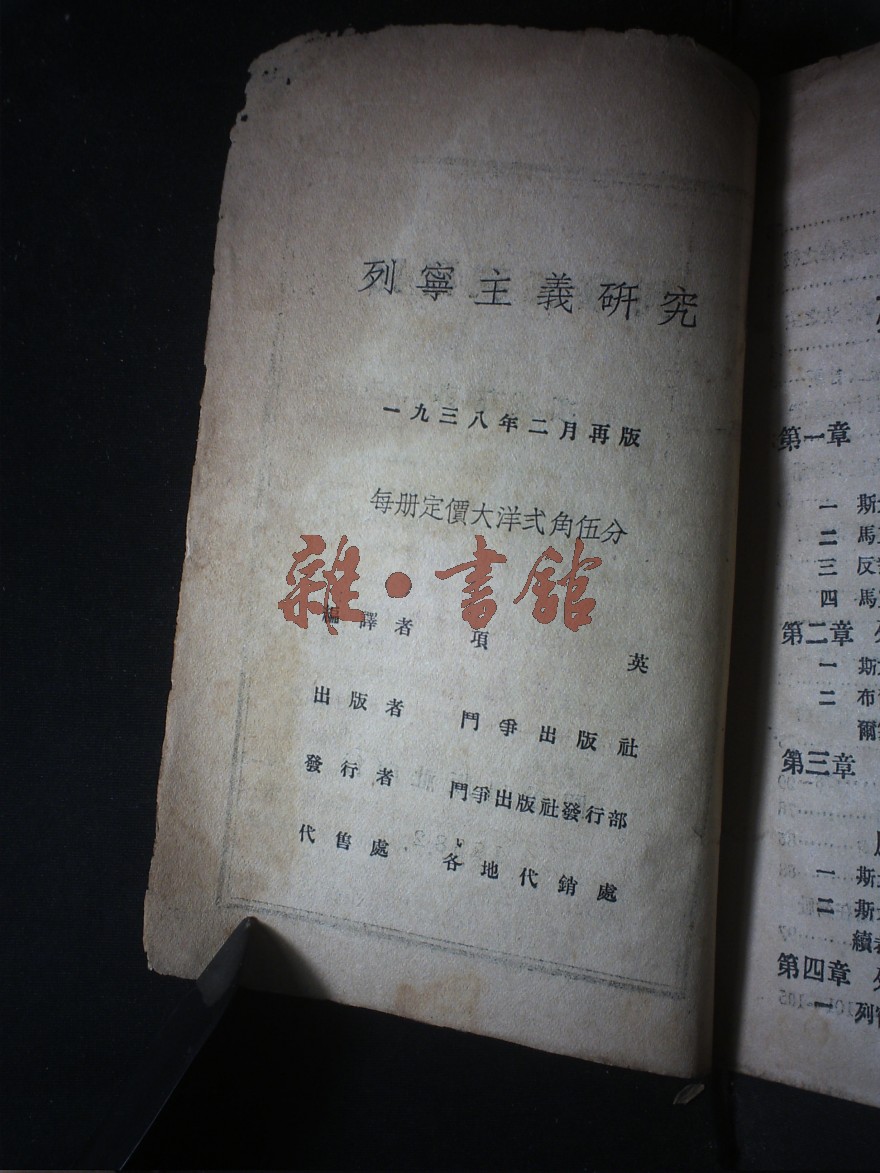 列寧主義研究
一九三八年二月再版
每册定價大洋弍角伍分
雜·書館
編譯者 項英
出版者 鬥爭出版社
發行者 鬥爭出版社發行部
代售處 各地代銷處
第一章
一 斯
二 馬
三 反
四 馬
第二章 列
一 斯
二 布
爾
第三章
一 斯
二 斯
續
第四章 列
一 列寧